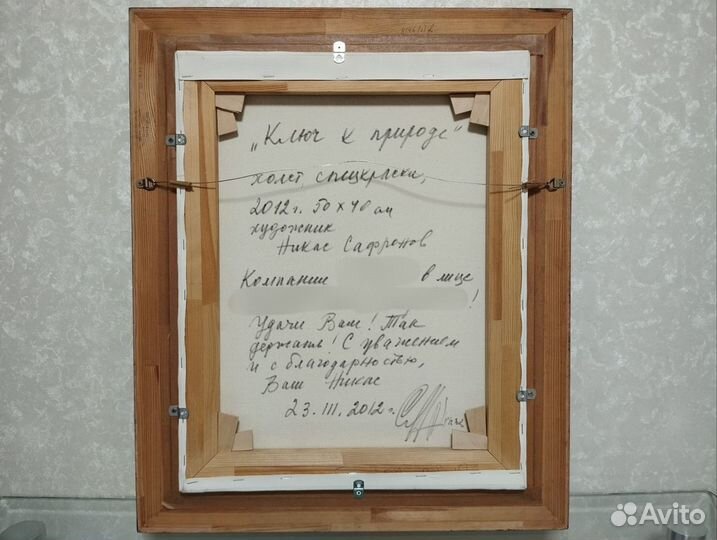 „Ключ к природе"
холст, спецкраски,
2012 г. 50 х 40 см
художник
Никас Сафронов
Компании в лице
!
Удачи Вам! Так
держать! С уважением
и с благодарностью,
Ваш Никас
23. III. 2012 г.
Avito